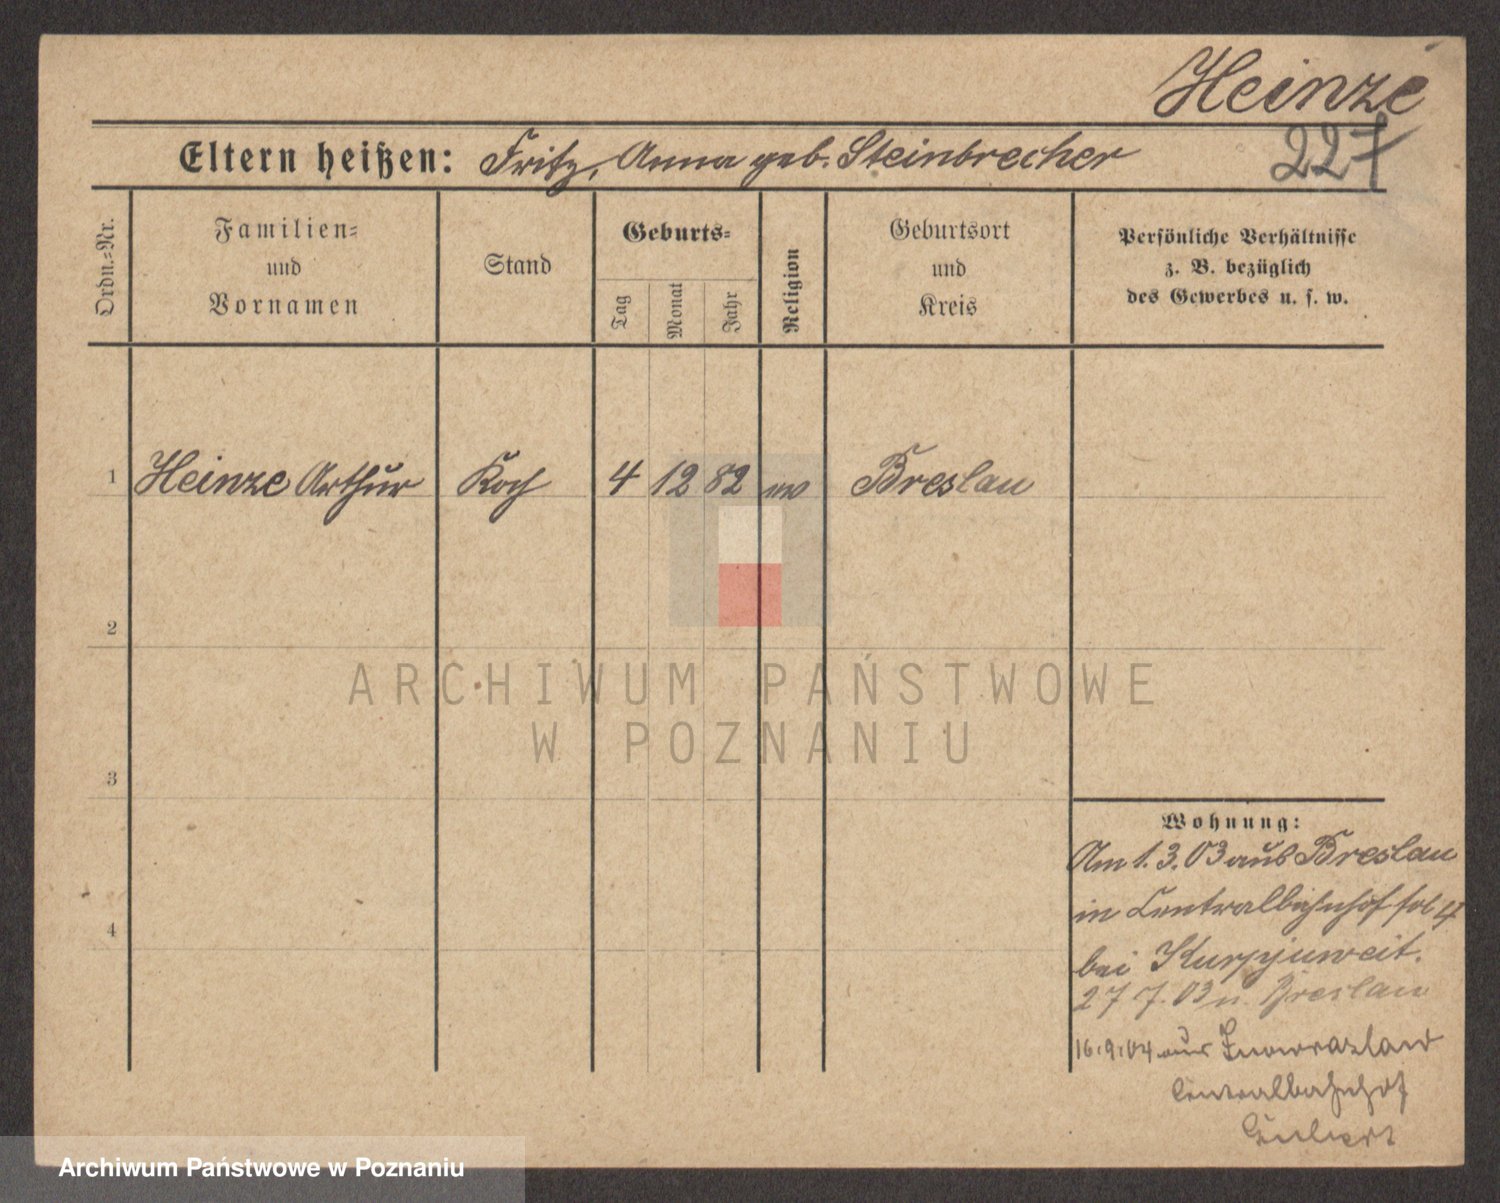 Heinze
227
Eltern heißen: Fritz, Anna geb. Steinbrecher
Ordn.=Nr.
Familien=
und
Vornamen
Stand
Geburts=
Tag
Monat
Jahr
Religion
Geburtsort
und
Kreis
Persönliche Verhältnisse
z. B. bezüglich
des Gewerbes u. s. w.
1 Heinze Arthur Koch 4 12 82 ev Breslau
2
3
4
Wohnung:
Am 1.3.03 aus Breslau
in Centralbahnhof
bei Kurpjuweit.
27 7. 03 n. Breslau
16.9.04 aus Inowrazlaw
Centralbahnhof
ARCHIWUM PAŃSTWOWE
W POZNANIU
Archiwum Państwowe w Poznaniu